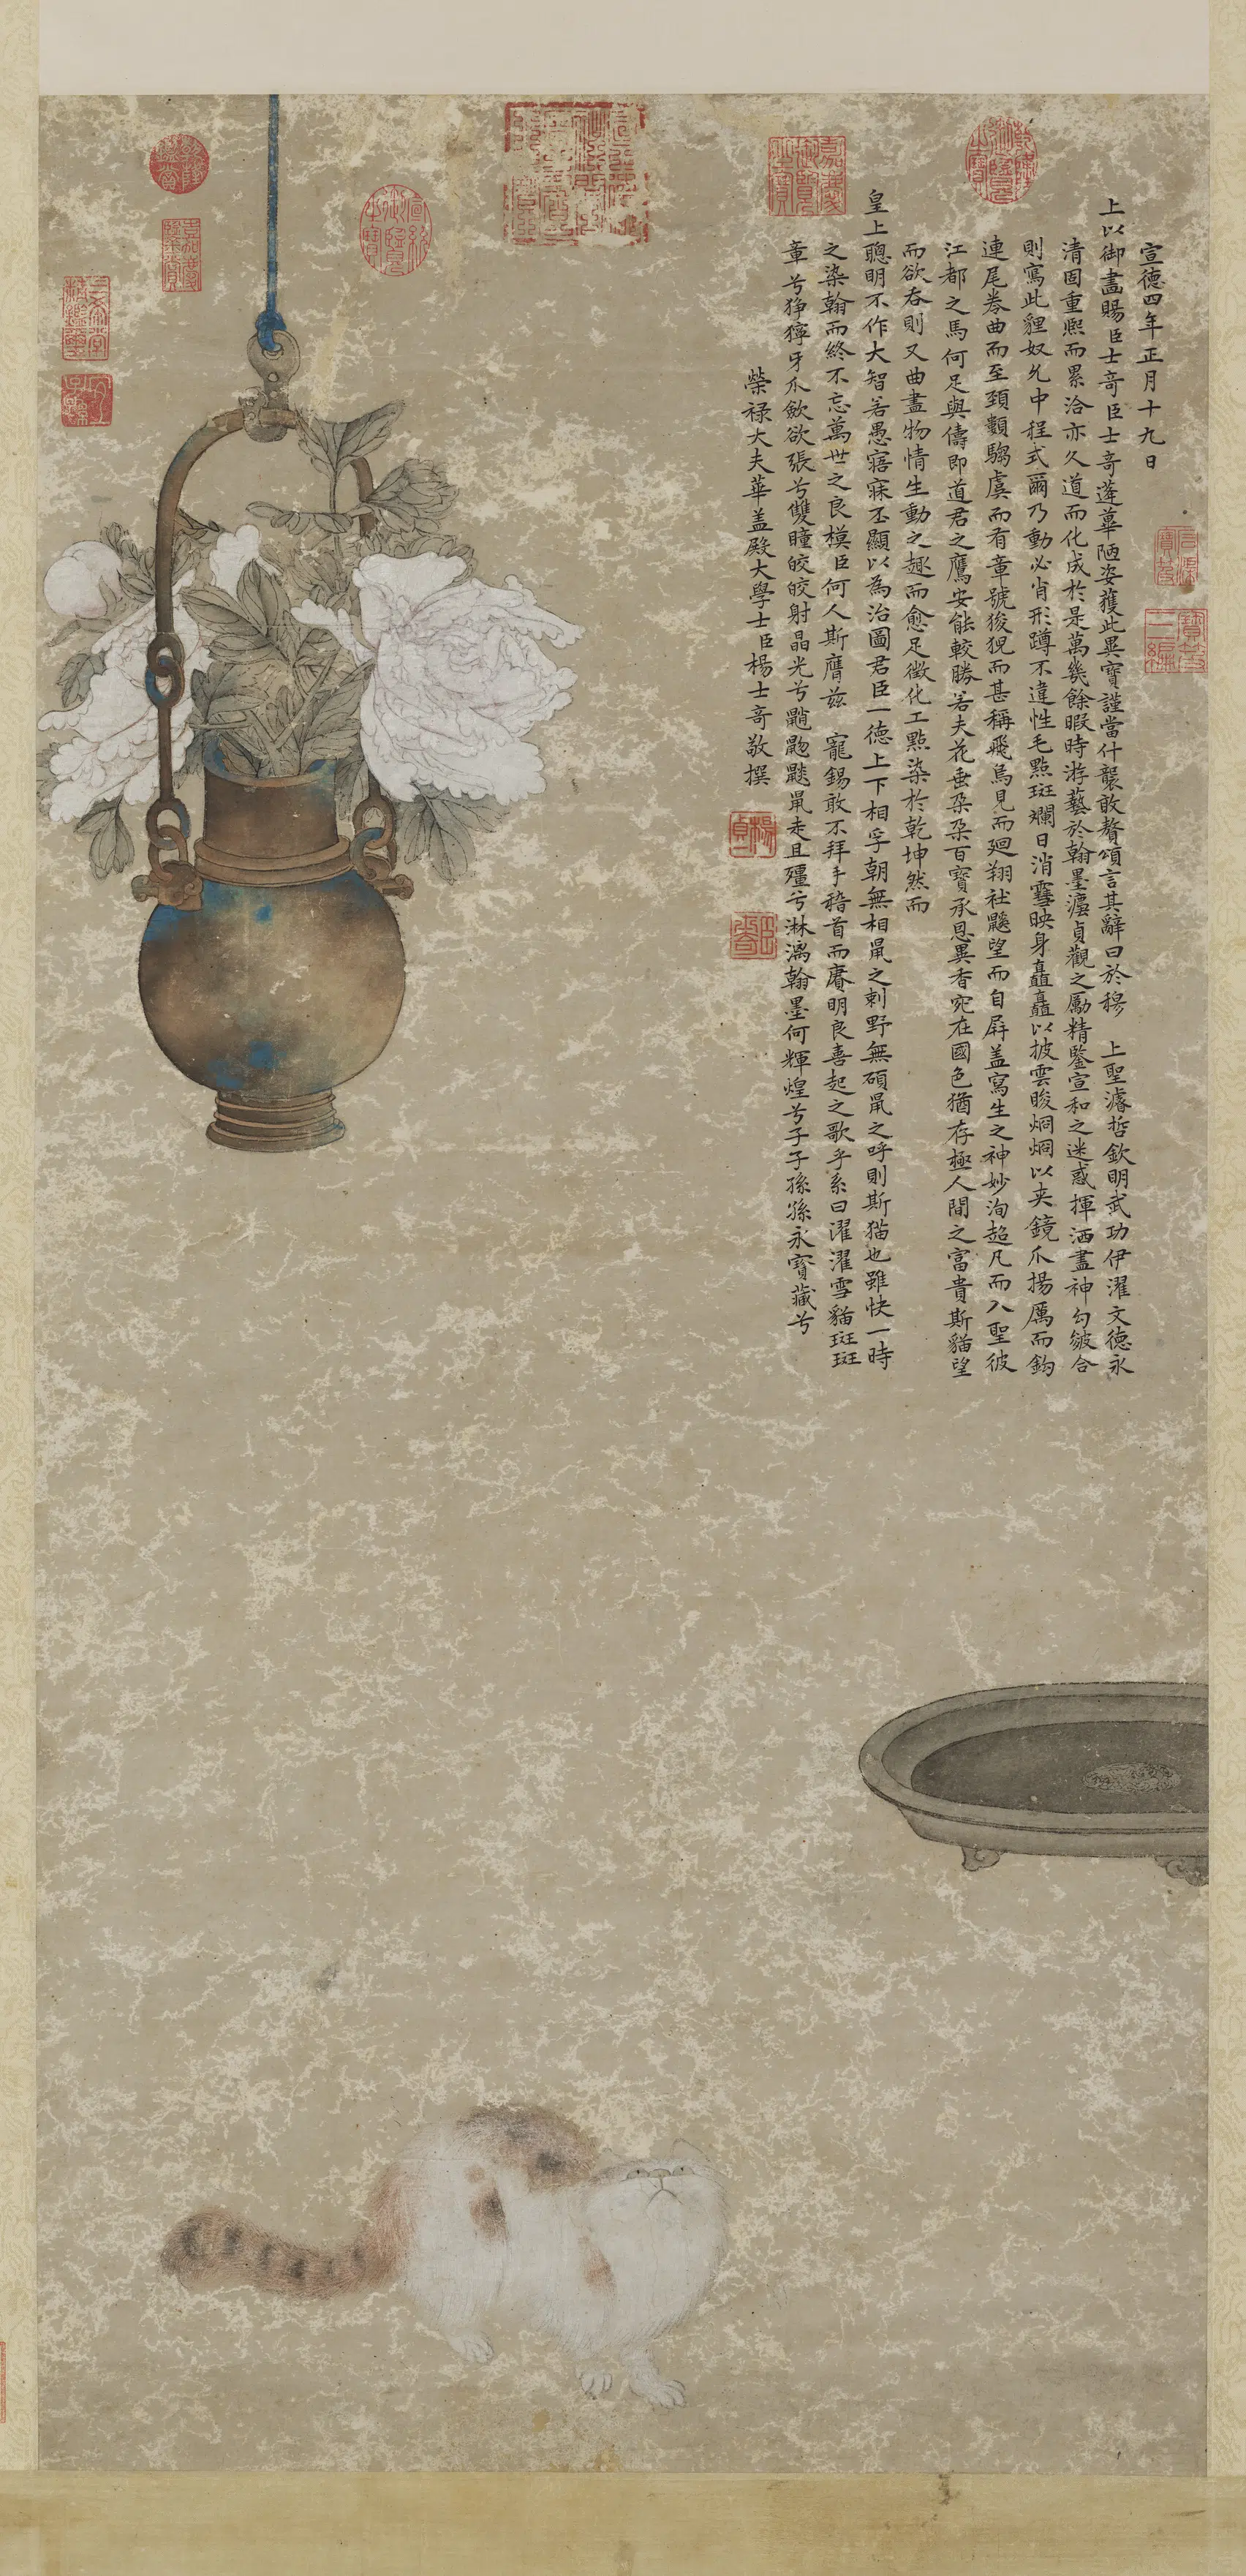 宣德四年正月十九日
上以御畫賜臣士奇臣士奇蓬蓽陋姿獲此異寶謹當什襲敢贅頌言其辭曰於穆 上聖濬哲欽明武功伊濯文德永
清固重熙而累洽亦久道而化成於是萬幾餘暇時游藝於翰墨瀛貞觀之勵精鑒宣和之迷惑揮洒畫神勾皴合
則寫此貍奴允中程式爾乃動必肖形蹲不違性毛點斑斕日消霻映身矗矗以披雲晙烱烱以夾鏡爪揚厲而鈎
連尾拳曲而至頸顙騶虞而有章號狻猊而甚稱飛鳥見而廻翔社鼷望而自屏盖寫生之神妙洵超凡而入聖彼
江都之馬何足與儔即道君之鷹安能較勝若夫花垂朶朶百寶承恩異香宛在國色猶存極人間之富貴斯貓望
而欲吞則又曲盡物情生動之趣而愈足徵化工點染於乾坤然而
皇上聰明不作大智若愚寤寐丕顯以為治圖君臣一德上下相孚朝無相鼠之刺野無碩鼠之呼則斯猫也雖快一時
之染翰而終不忘萬世之良模臣何人斯膺茲 寵錫敢不拜手稽首而賡明良喜起之歌乎系曰濯濯雪貓斑斑
章兮猙獰牙爪歛欲張兮雙瞳皎皎射晶光兮鼯鼢鼷鼠走且殭兮淋漓翰墨何輝煌兮子子孫孫永寶藏兮
榮祿大夫華盖殿大學士臣楊士奇敬撰
嘉慶御覽之寶
乾隆御覽之寶
宣統御覽之寶
嘉慶鑒賞
三希堂精鑑璽
宜子孫
石渠寶笈
寶笈三編